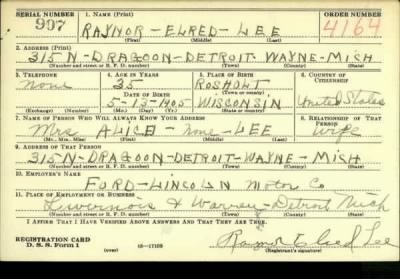 SERIAL NUMBER 1. NAME (Print) ORDER NUMBER
907 RAYNOR - ELRED - LEE 4164
(First) (Middle) (Last)
2. ADDRESS (Print)
315 N - DRAGOON - DETROIT - WAYNE - MICH
(Number and street or R. F. D. number) (Town) (County) (State)
3. TELEPHONE 4. AGE IN YEARS 5. PLACE OF BIRTH 6. COUNTRY OF CITIZENSHIP
None 35 ROSHOLT
DATE OF BIRTH (Town or county)
5-13-1905 WISCONSIN United States
(Exchange) (Number) (Mo.) (Day) (Yr.) (State or country)
7. NAME OF PERSON WHO WILL ALWAYS KNOW YOUR ADDRESS 8. RELATIONSHIP OF THAT PERSON
Mrs ALICE - none - LEE Wife
(Mr., Mrs., Miss) (First) (Middle) (Last)
9. ADDRESS OF THAT PERSON
315 N - DRAGOON - DETROIT - WAYNE - MICH
(Number and street or R. F. D. number) (Town) (County) (State)
10. EMPLOYER'S NAME
FORD - LINCOLN Motor Co
11. PLACE OF EMPLOYMENT OR BUSINESS
Livernois & Warren - Detroit Mich
(Number and street or R. F. D. number) (Town) (County) (State)
I AFFIRM THAT I HAVE VERIFIED ABOVE ANSWERS AND THAT THEY ARE TRUE.
REGISTRATION CARD
D. S. S. Form 1 16-17105 Raynor Elred Lee
(Registrant's signature)